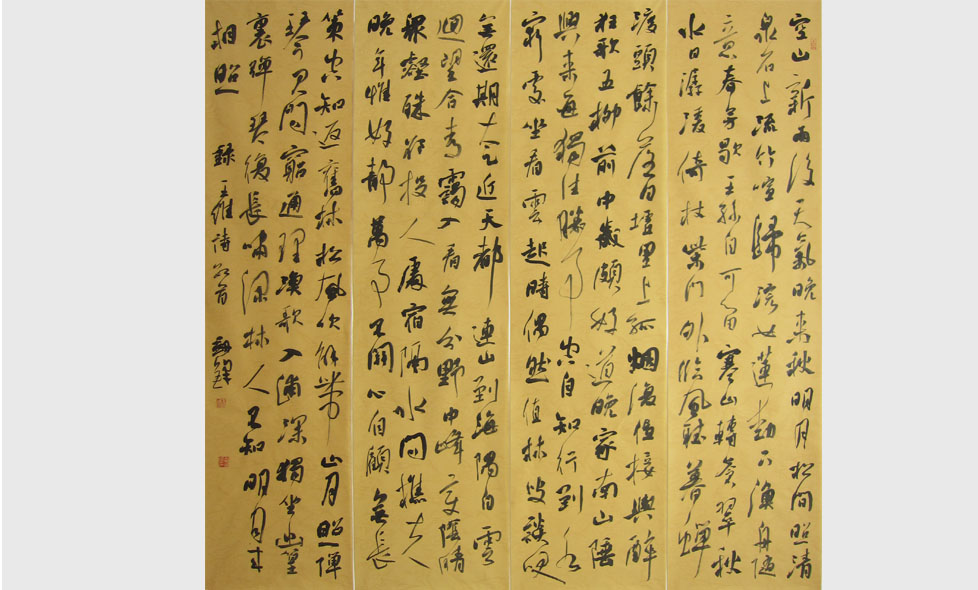 空山新雨後天氣晚来秋明月松間照清
泉石上流竹喧歸浣女蓮動下漁舟随
意春芳歇王孫自可留寒山轉蒼翠秋
水日潺湲倚杖柴門外臨風聽暮蟬
渡頭餘落日墟里上孤烟復值接輿醉
狂歌五柳前中歲頗好道晚家南山陲
興来每獨往勝事空自知行到水
窮處坐看雲起時偶然值林叟談笑
無還期太乙近天都連山到海隅白雲
迴望合青靄入看無分野中峰變陰晴
衆壑殊欲投人處宿隔水問樵夫
晚年惟好静萬事不關心自顧無長
策空知返舊林松風吹解帶山月照彈
琴君問窮通理漁歌入浦深獨坐幽篁
裏彈琴復長嘯深林人不知明月来
相照 錄王維詩數首